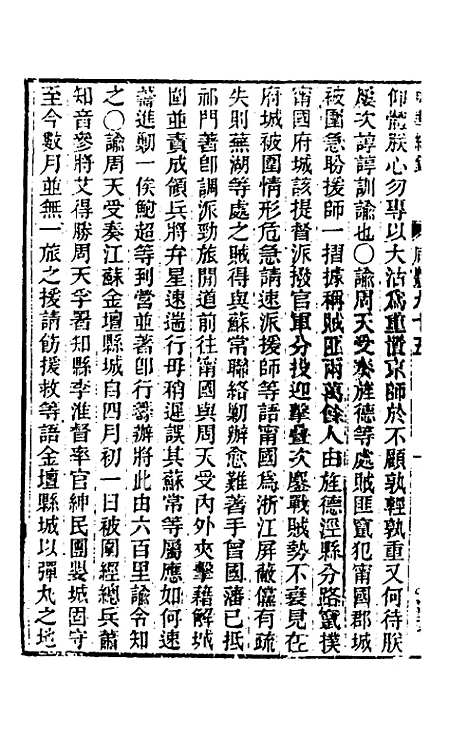 仰體朕心勿專以大沽爲重置京師於不顧孰輕孰重又何待朕
屢次諄諄訓諭也〇諭周天受奏旌德等處賊匪竄犯甯國郡城
被圍急盼援師一摺據稱賊匪兩萬餘人由旌德涇縣分路竄撲
甯國府城該提督派撥官軍分投迎擊疊次鏖戰賊勢不衰見在
府城被圍情形危急請速派援師等語甯國爲浙江屏蔽儻有疏
失則蕪湖等處之賊得與蘇常聯絡勦辦愈難著手曾國藩已抵
祁門著卽調派勁旅開道前往甯國與周天受內外夾擊藉解城
圍並責成領兵將弁星速遄行毋稍遲誤其蘇常等屬應如何速
籌進勦一俟鮑超等到營並著卽行籌辦將此由六百里諭令知
之〇諭周天受奏江蘇金壇縣城自四月初一日被圍經總兵蕭
知音參將艾得勝周天孚署知縣李淮督率官紳民團嬰城固守
至今數月並無一旅之援請飭援救等語金壇縣城以彈丸之地